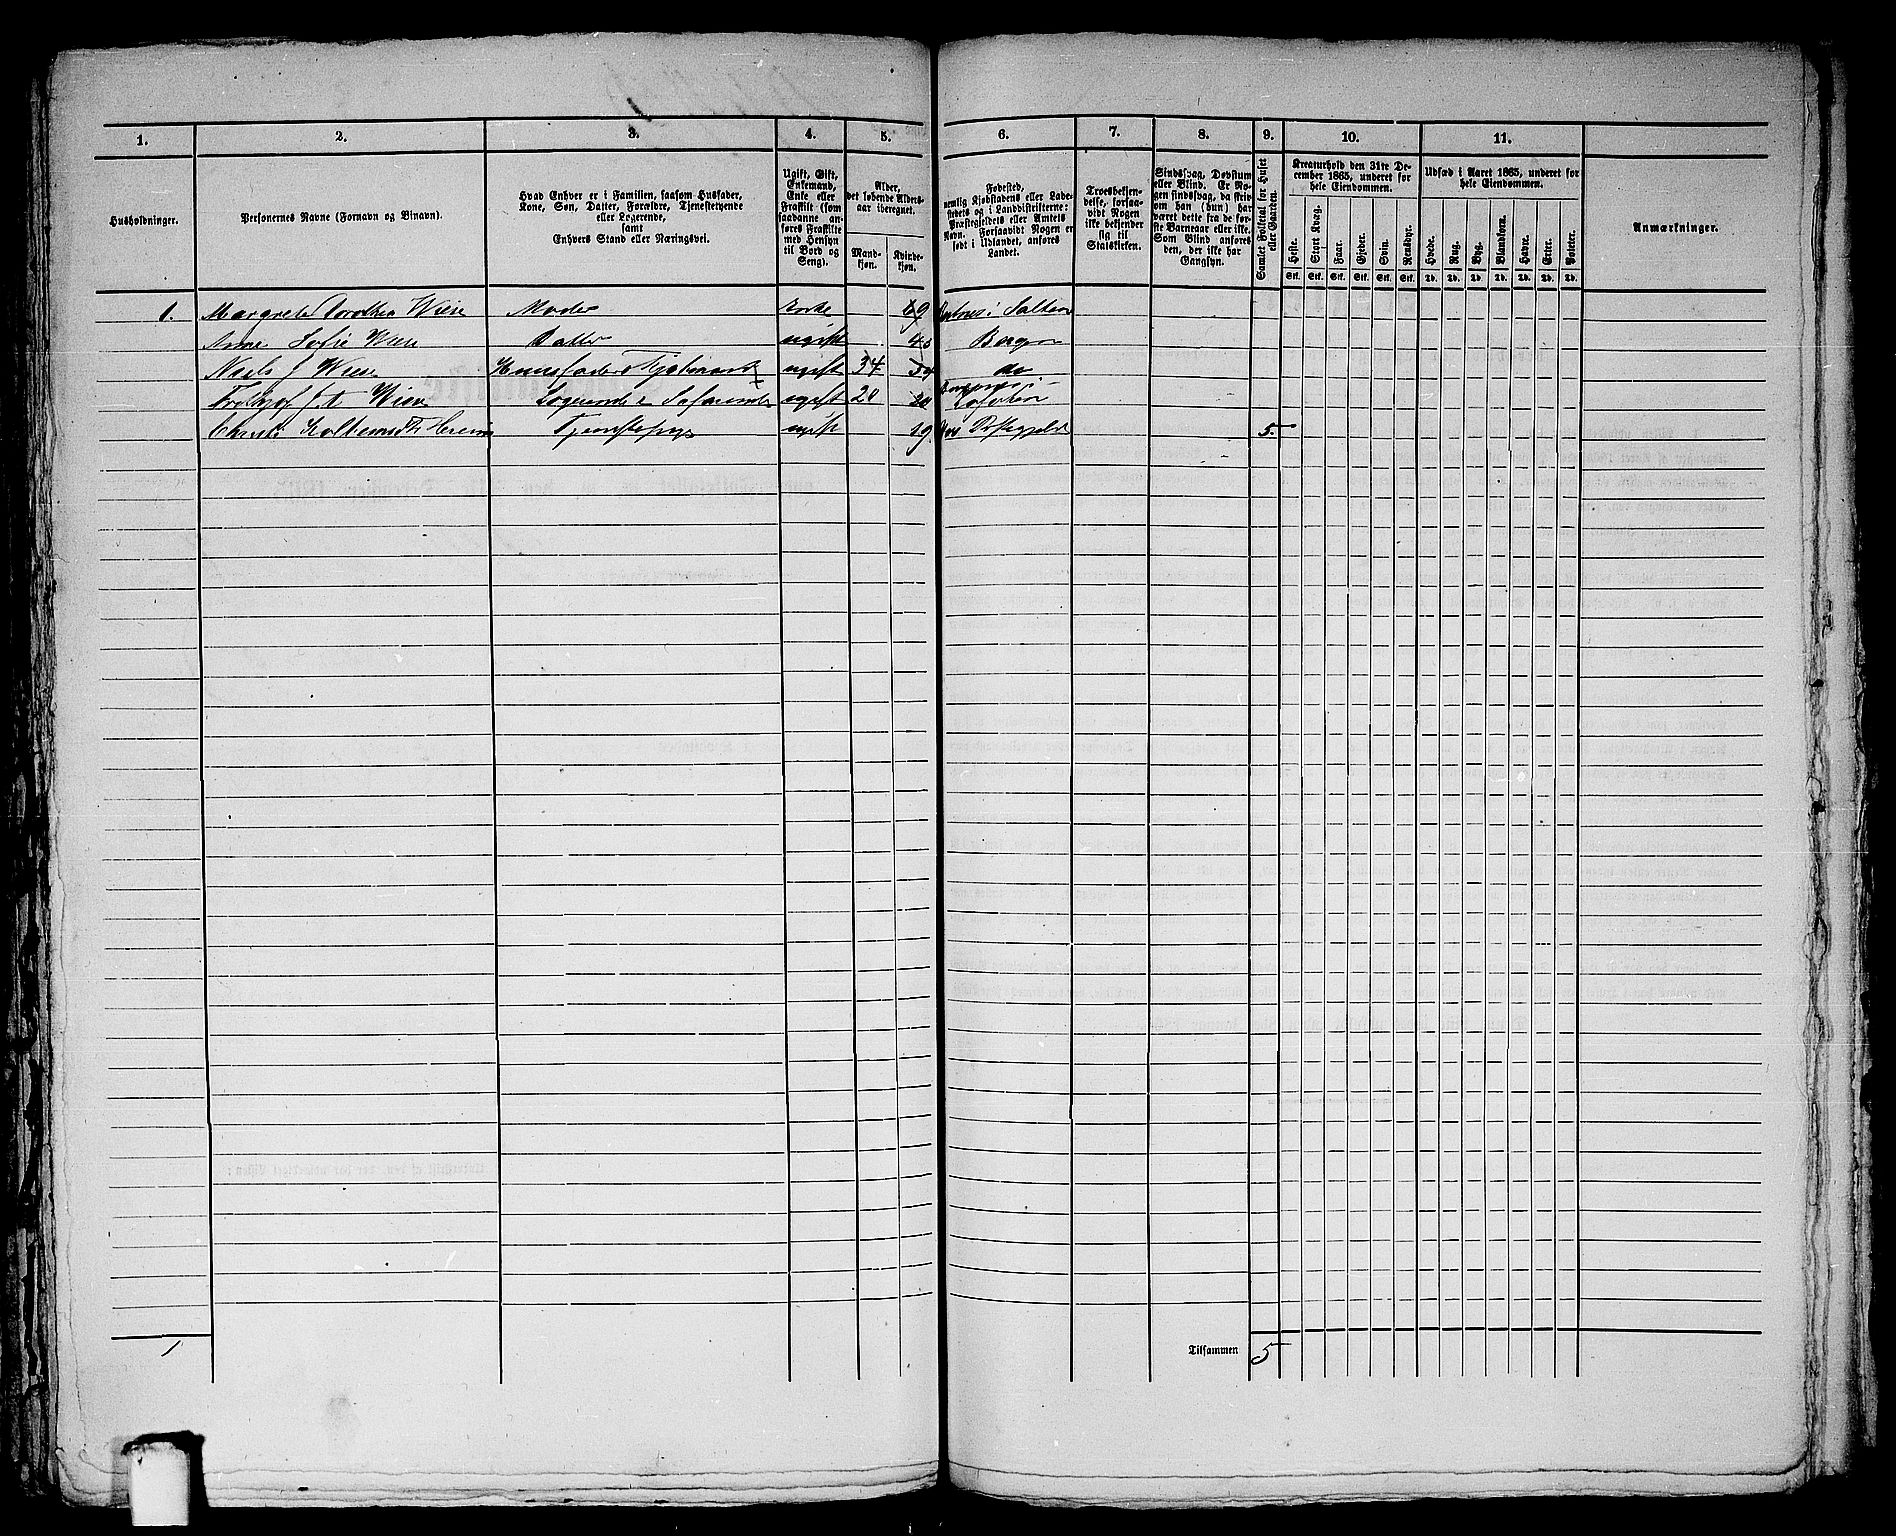 1. 2. 3. 4. 5. 6. 7. 8. 9. 10. 11.
Husholdninger.
Personernes Navne (Fornavn og Binavn).
Hvad Enhver er i Familien, saasom Husfader,
Kone, Søn, Datter, Forældre, Tjenestetyende
eller Logerende,
samt
Enhvers Stand eller Næringsvei.
Ugift, Gift,
Enkemand,
Enke eller
Fraskilt (som
saadanne an-
føres Fraskilte
med Hensyn
til Bord og
Seng).
Alder,
det løbende Alders-
aar iberegnet.
Mand-
kjøn.
Kvinde-
kjøn.
Fødested,
nemlig Kjøbstadens eller Lade-
stedets og i Landdistrikterne:
Præstegjeldets eller Amtets
Navn. Forsaavidt Nogen er
født i Udlandet, anføres
Landet.
Troesbekjen-
delse, forsaa-
vidt Nogen
ikke bekjender
sig til
Statskirken.
Sindssvag, Døvstum
eller Blind. Er No-
gen sindssvag, da skriv
om han (hun) har
været dette fra de før-
ste Barneaar eller ikke.
Som Blind anføres
den, der ikke har
Gangsyn.
Samlet Folketal for Huset
eller Gaarden.
Kreaturhold den 31te De-
cember 1865, underet for
hele Eiendommen.
Heste. Stort Kvæg. Faar. Gjeder. Svin. Rensdyr.
Stk. Stk. Stk. Stk. Stk. Stk.
Udsæd i Aaret 1865, underet for
hele Eiendommen.
Hvede. Rug. Byg. Blandkorn. Havre. Erter. Poteter.
Td. Td. Td. Td. Td. Td. Td.
Anmærkninger.
1. Margrete Dorothea Wiese Moder Enke 69 i Salten
Anne Sofie Wiese Datter ugift 40 Bergen
Niels J Wiese Huusfader ugift 34 34 do
Wiese Logerende ugift 20 20
Tjenestepige ugift 19 5.
1
Tilsammen 5